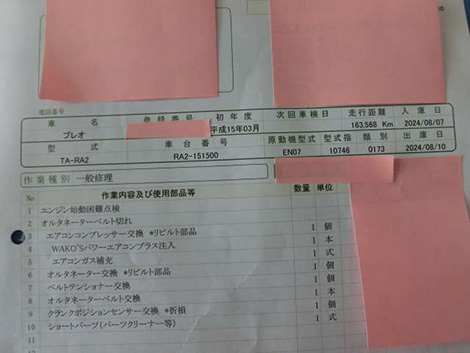 電話番号
車名 登録番号 初年度 次回車検日 走行距離 入庫日
プレオ 平成15年03月 163,568 Km 2024/08/07
型式 車台番号 原動機型式 型式指 類別 出庫日
TA-RA2 RA2-151500 EN07 10746 0173 2024/08/10
作業種別 一般修理
No 作業内容及び使用部品等 数量 単位
1 エンジン始動困難点検
2 オルタネーターベルト切れ
3 エアコンコンプレッサー交換 *リビルト部品 1 個
4 WAKO'Sパワーエアコンプラス注入 1 本
5 エアコンガス補充 1 式
6 オルタネーター交換 *リビルト部品 1 個
7 ベルトテンショナー交換 1 個
8 オルタネーターベルト交換 1 本
9 クランクポジションセンサー交換 *折損 1 個
10 ショートパーツ(パーツクリーナー等) 1 式